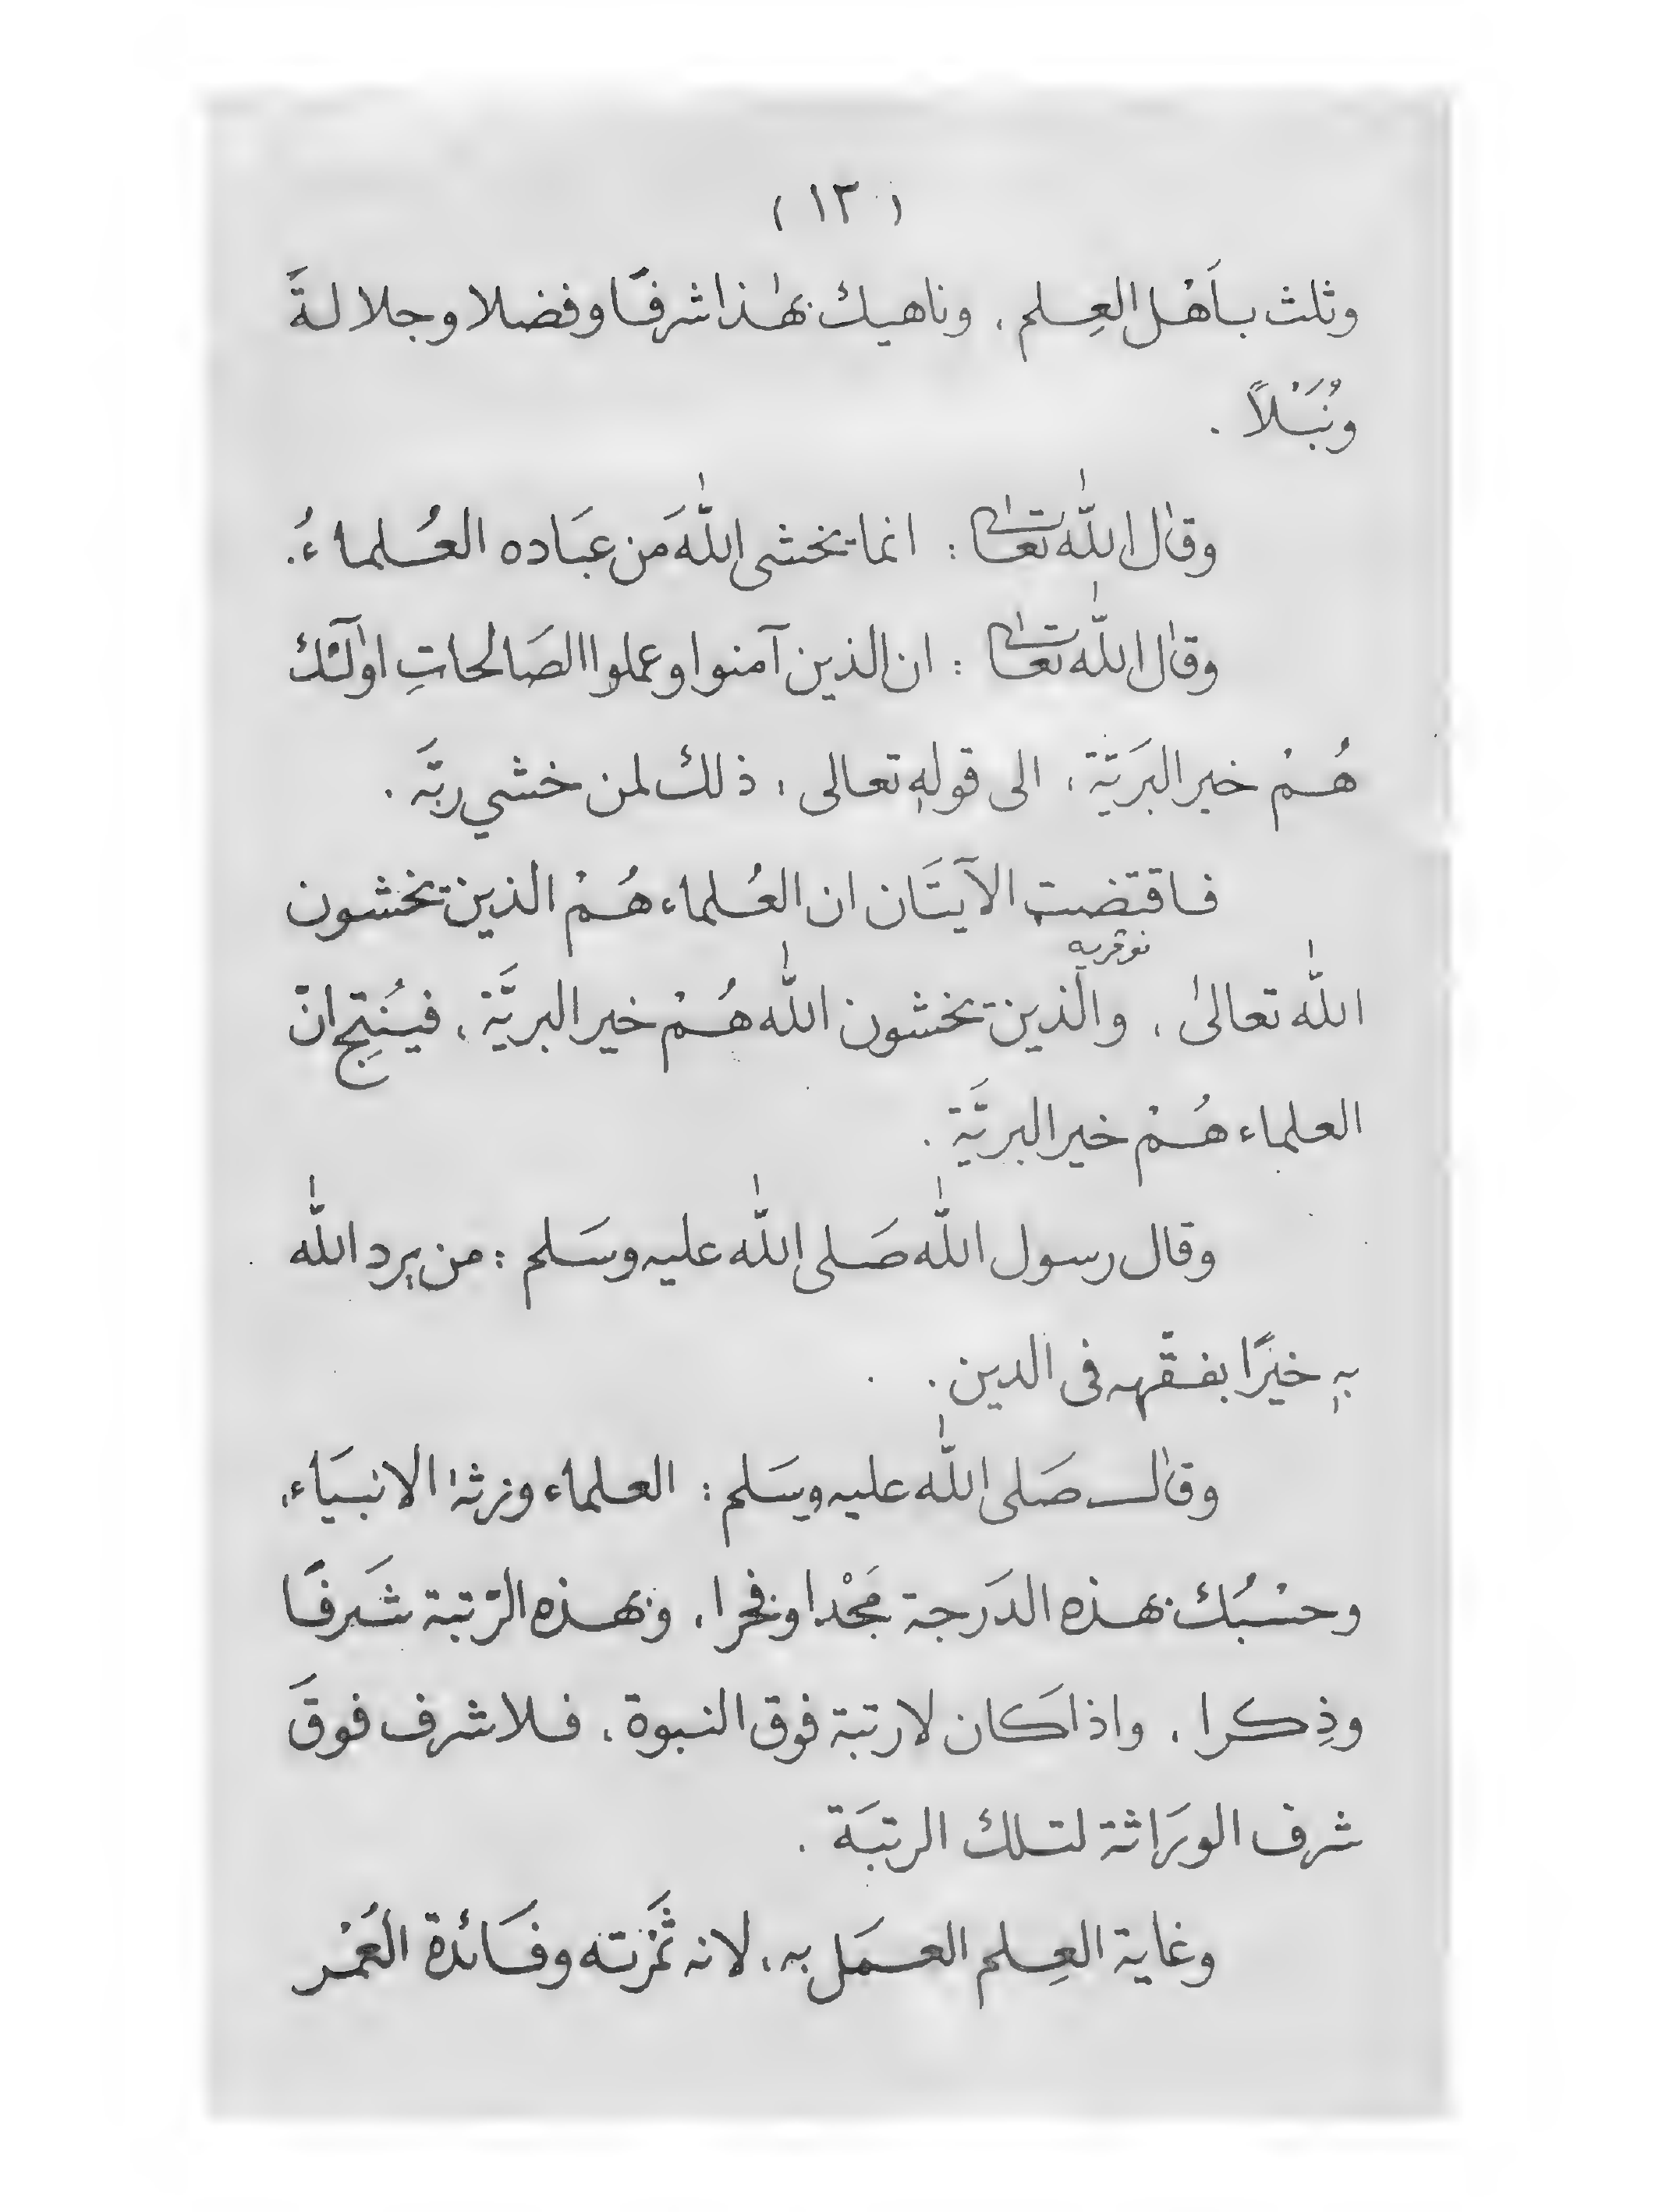 ( ١٣ )
وثلث بأَهْل العِلم ، وناهيك بهٰذا شرفًا وفضلا وجلالةً
ونُبَْلاً .
وقال الله تعالى : انما يخشى اللهَ من عبَاده العُلماءُ .
وقال الله تعالى : ان الذين آمنوا وعملوا الصَالحاتِ اولٓئك
هُمْ خير البَريَّة ، الى قولهٖ تعالى ، ذلك لمن خشي ربَّه .
فاقتضت الآيتَان ان العُلماء هُمْ الذين يخشون
الله تعالىٰ ، والذين يخشون الله هُمْ خير البريَّة ، فيُنتِج انّ
العلماء هُمْ خير البريَّة .
وقال رسول الله صَلى الله عليه وسَلم : من يرد الله
بهٖ خيرًا يفقّهه فى الدين .
وقال صَلى الله عليه وسَلم : العلماء ورثة الانبيَاء ،
وحسْبُك بهذه الدَرجة مَجْدا وفخرا ، وبهذه الرّتبة شَرفًا
وذِكرا ، واذا كَان لا رتبة فوق النبوة ، فلا شرف فوقَ
شرف الورَاثة لتلك الرتبَة .
وغاية العِلم العمَل به ، لانه ثَمْرته وفَائدة العُمْر